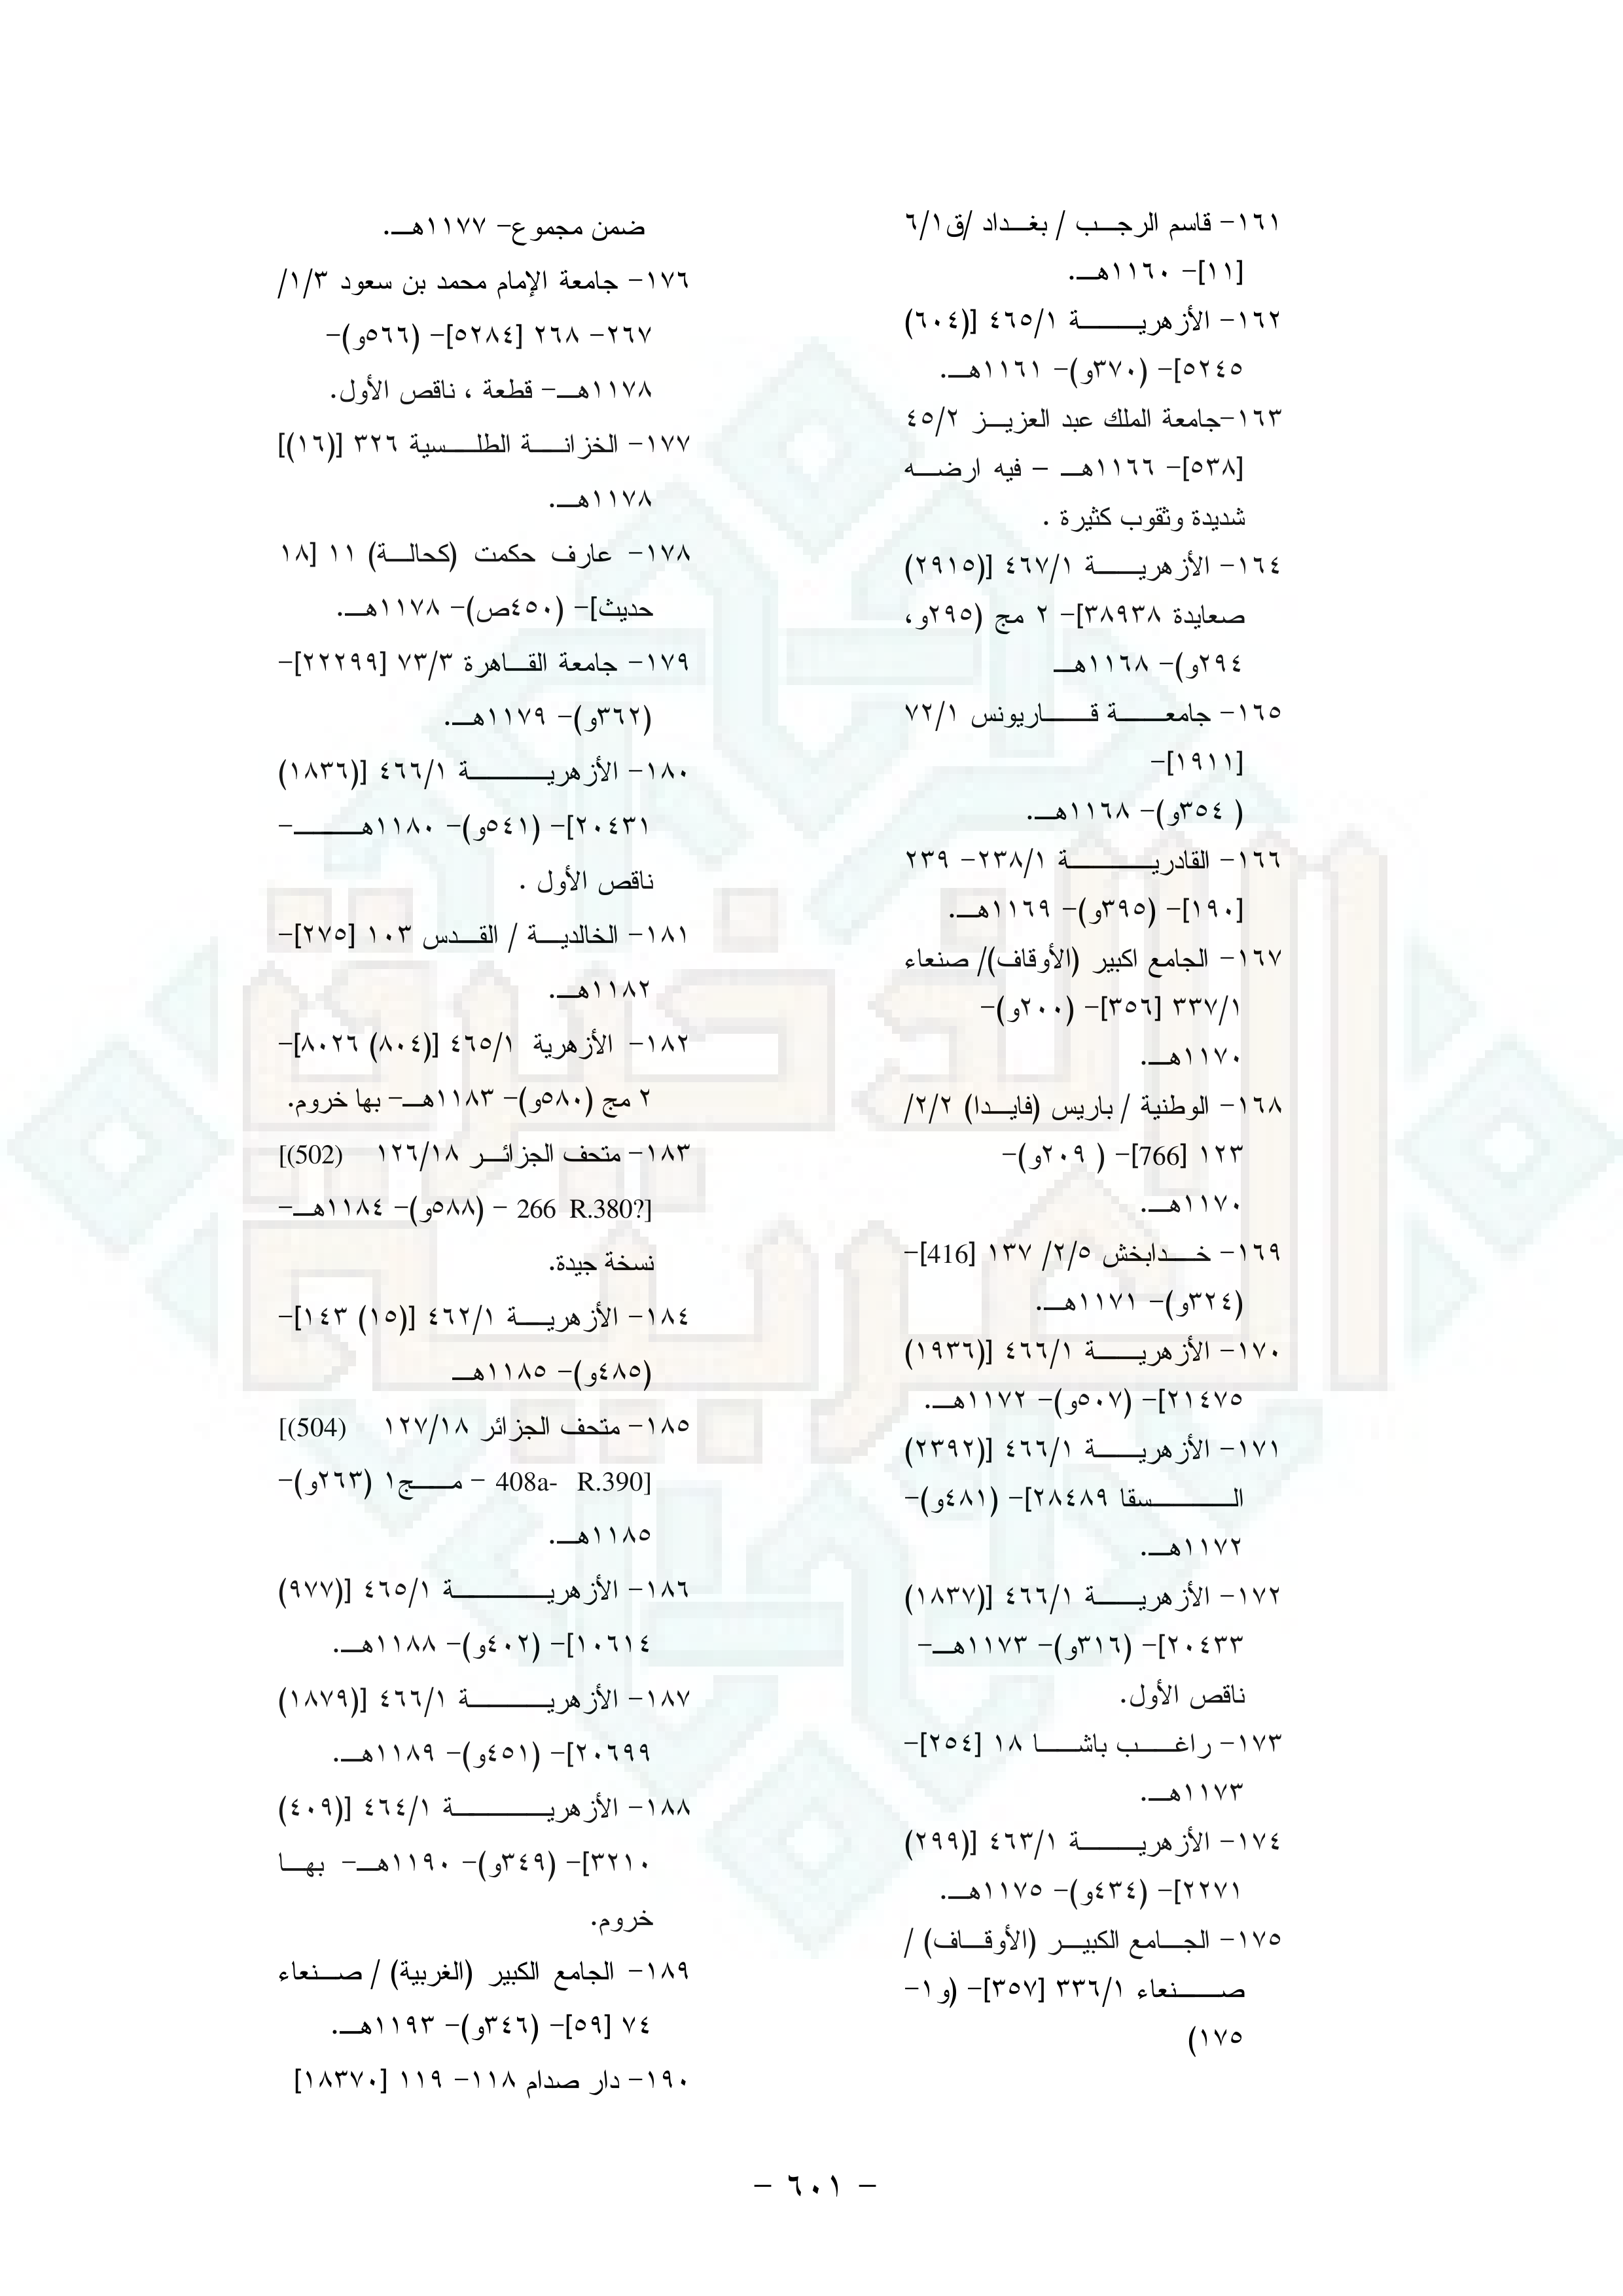 ١٦١- قاسم الرجب / بغداد /ق٦/١
[١١]- ١١٦٠هـ.
١٦٢- الأزهرية ٤٦٥/١ [(٦٠٤)
٥٢٤٥]- (٣٧٠و)- ١١٦١هـ.
١٦٣-جامعة الملك عبد العزيز ٤٥/٢
[٥٣٨]- ١١٦٦هـ – فيه ارضه
شديدة وثقوب كثيرة .
١٦٤- الأزهرية ٤٦٧/١ [(٢٩١٥)
صعايدة ٣٨٩٣٨]- ٢ مج (٢٩٥و،
٢٩٤و)- ١١٦٨هـ
١٦٥- جامعة قاريونس ٧٢/١
[١٩١١]-
( ٣٥٤و)- ١١٦٨هـ.
١٦٦- القادرية ٢٣٨/١- ٢٣٩
[١٩٠]- (٣٩٥و)- ١١٦٩هـ.
١٦٧- الجامع اكبير (الأوقاف)/ صنعاء
٣٣٧/١ [٣٥٦]- (٢٠٠و)-
١١٧٠هـ.
١٦٨- الوطنية / باريس (فايدا) ٢/٢/
١٢٣ [766]- ( ٢٠٩و)-
١١٧٠هـ.
١٦٩- خدابخش ٢/٥/ ١٣٧ [416]-
(٣٢٤و)- ١١٧١هـ.
١٧٠- الأزهرية ٤٦٦/١ [(١٩٣٦)
٢١٤٧٥]- (٥٠٧و)- ١١٧٢هـ.
١٧١- الأزهرية ٤٦٦/١ [(٢٣٩٢)
السقا ٢٨٤٨٩]- (٤٨١و)-
١١٧٢هـ.
١٧٢- الأزهرية ٤٦٦/١ [(١٨٣٧)
٢٠٤٣٣]- (٣١٦و)- ١١٧٣هـ-
ناقص الأول.
١٧٣- راغب باشا ١٨ [٢٥٤]-
١١٧٣هـ.
١٧٤- الأزهرية ٤٦٣/١ [(٢٩٩)
٢٢٧١]- (٤٣٤و)- ١١٧٥هـ.
١٧٥- الجامع الكبير (الأوقاف) /
صنعاء ٣٣٦/١ [٣٥٧]- (و١-
١٧٥)
ضمن مجموع- ١١٧٧هـ.
١٧٦- جامعة الإمام محمد بن سعود ١/٣/
٢٦٧- ٢٦٨ [٥٢٨٤]- (٥٦٦و)-
١١٧٨هـ- قطعة ، ناقص الأول.
١٧٧- الخزانة الطلسية ٣٢٦ [(١٦)]
١١٧٨هـ.
١٧٨- عارف حكمت (كحالة) ١١ [١٨
حديث]- (٤٥٠ص)- ١١٧٨هـ.
١٧٩- جامعة القاهرة ٧٣/٣ [٢٢٢٩٩]-
(٣٦٢و)- ١١٧٩هـ.
١٨٠- الأزهرية ٤٦٦/١ [(١٨٣٦)
٢٠٤٣١]- (٥٤١و)- ١١٨٠هـ-
ناقص الأول .
١٨١- الخالدية / القدس ١٠٣ [٢٧٥]-
١١٨٢هـ.
١٨٢- الأزهرية ٤٦٥/١ [(٨٠٤) ٨٠٢٦]-
٢ مج (٥٨٠و)- ١١٨٣هـ- بها خروم.
١٨٣- متحف الجزائر ١٢٦/١٨ [(502)
266 R.380?] - (٥٨٨و)- ١١٨٤هـ-
نسخة جيدة.
١٨٤- الأزهرية ٤٦٢/١ [(١٥) ١٤٣]-
(٤٨٥و)- ١١٨٥هـ
١٨٥- متحف الجزائر ١٢٧/١٨ [(504)
408a- R.390] - مج١ (٢٦٣و)-
١١٨٥هـ.
١٨٦- الأزهرية ٤٦٥/١ [(٩٧٧)
١٠٦١٤]- (٤٠٢و)- ١١٨٨هـ.
١٨٧- الأزهرية ٤٦٦/١ [(١٨٧٩)
٢٠٦٩٩]- (٤٥١و)- ١١٨٩هـ.
١٨٨- الأزهرية ٤٦٤/١ [(٤٠٩)
٣٢١٠]- (٣٤٩و)- ١١٩٠هـ- بها
خروم.
١٨٩- الجامع الكبير (الغربية) / صنعاء
٧٤ [٥٩]- (٣٤٦و)- ١١٩٣هـ.
١٩٠- دار صدام ١١٨- ١١٩ [١٨٣٧٠]
- ٦٠١ -